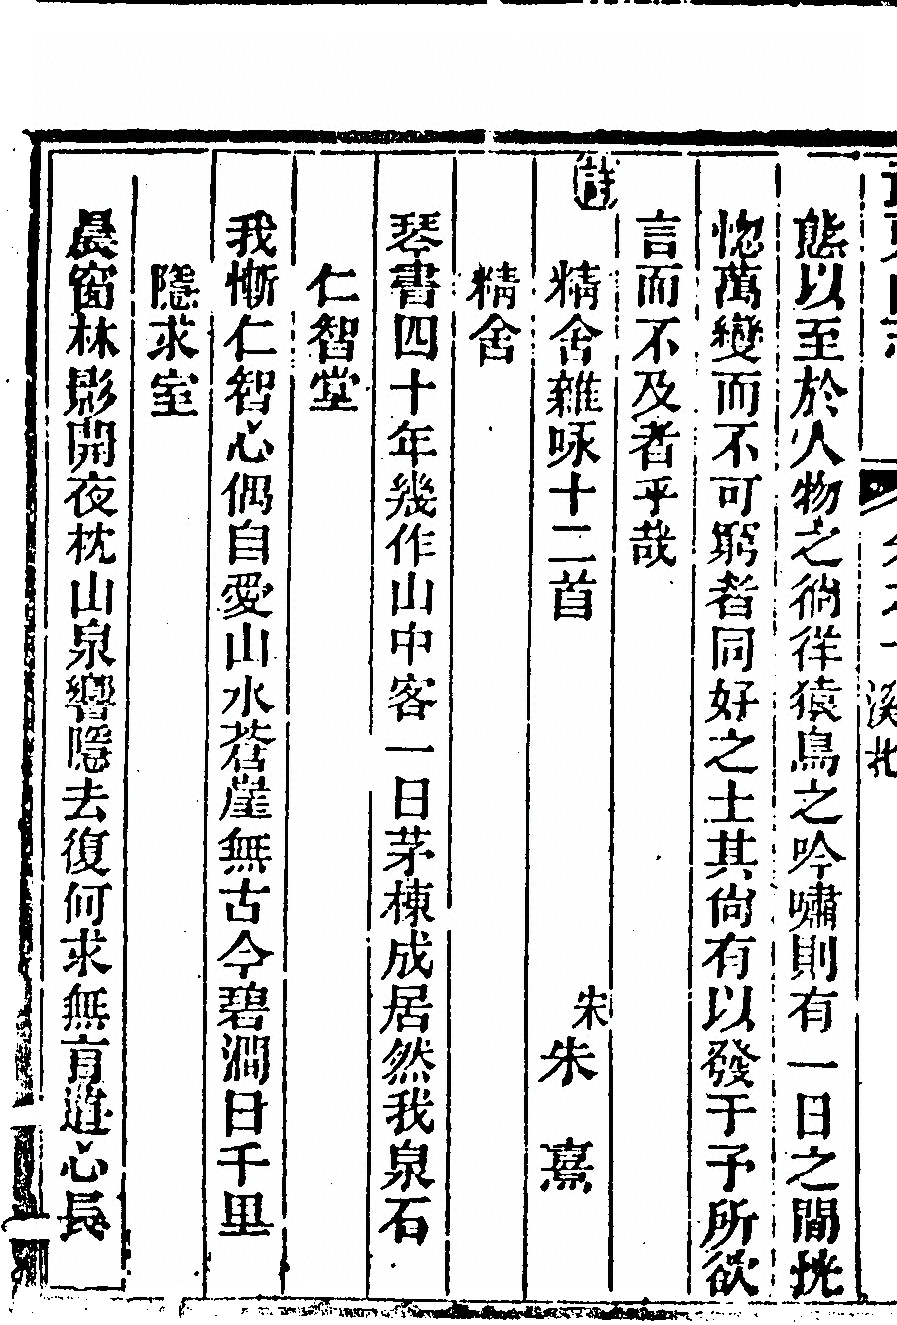 態以至於人物之徜徉猿鳥之吟嘯則有一日之間恍
惚萬變而不可窮者同好之士其尙有以發于予所欲
言而不及者乎哉
詩
精舍雜咏十二首 朱 朱熹
精舍
琴書四十年幾作山中客一日茅棟成居然我泉石
仁智堂
我慚仁智心偶自愛山水蒼崖無古今碧澗日千里
隱求室
晨窗林影開夜枕山泉響隱去復何求無言道心長